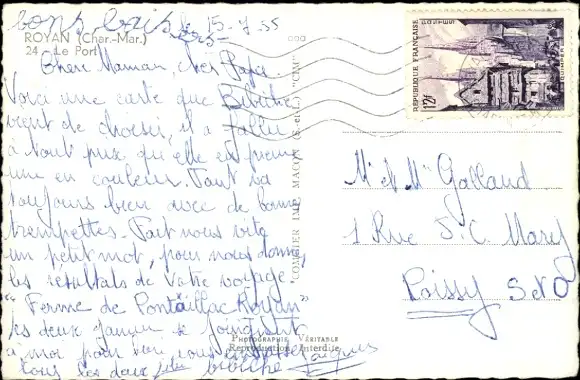 bons baisers
le 15-7-55
ROYAN (Char.-Mar.)
24 - Le Port
Chère Maman, cher Papa.
Voici une carte que
vient de choisir, il a fallu
à tout prix qu'elle en prenne
une en couleur. Tout va
toujours bien avec de bonnes
trempettes. Fait nous vite
un petit mot, pour nous donner
les résultats de votre voyage.
"Ferme de Pontaillac Royan"
les deux se joignent
à moi pour vous embrasser
tous les deux Jacques
COMBIER IMP. MACON (S.-et-L.) "CIM"
PHOTOGRAPHIE VÉRITABLE
Reproduction Interdite
REPUBLIQUE FRANÇAISE
POSTES
12F
QUIMPER
Mr et Mme Galland
1 Rue S.C. Mary
Poissy S et O